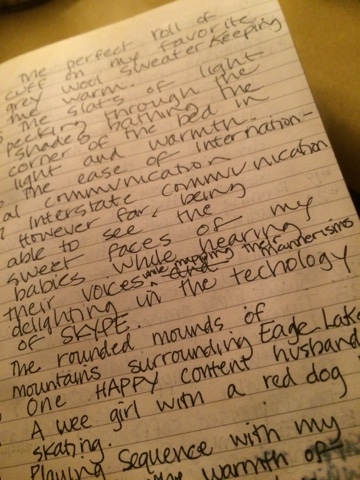 The perfect roll of
cuff on my favorite
grey wool sweater keeping
me warm.
The slats of light
pecking through the
shades bathing the
corner of the bed in
light and warmth.
The ease of internation-
al communication
interstate communication
However far, being
able to see the
sweet faces of my
babies while hearing
their voices while mapping their mannerisms
delighting in the techology
of SKYPE.
The rounded mounds of
mountains surrounding Eagle Lake
One HAPPY content husband
A wee girl with a red dog
skating.
Playing Sequence with my
the warmth of